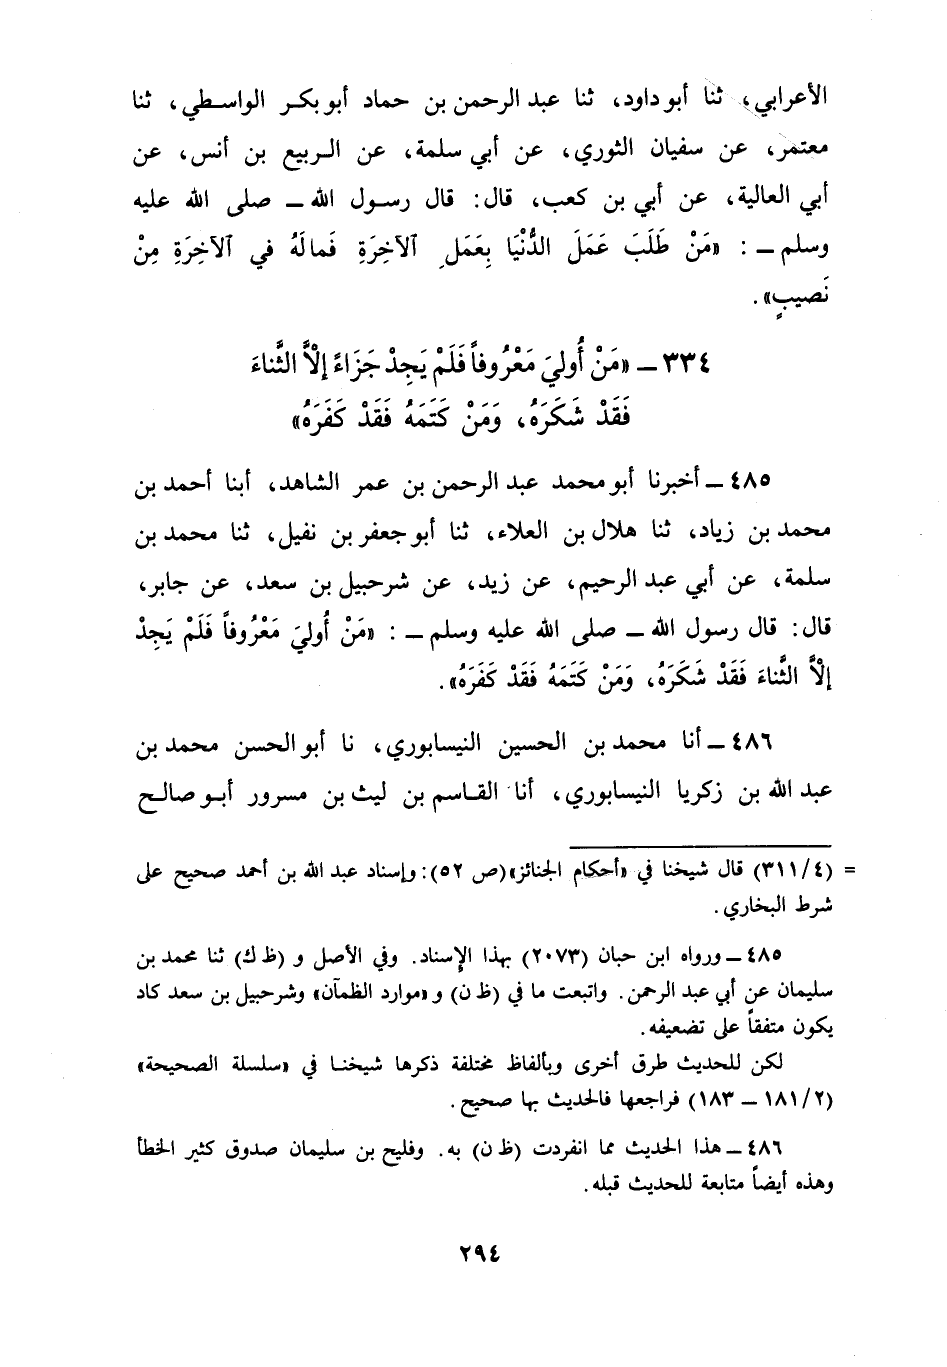 الأعرابي، ثنا أبو داود، ثنا عبد الرحمن بن حماد أبو بكر الواسطي، ثنا
معتمر، عن سفيان الثوري، عن أبي سلمة، عن الربيع بن أنس، عن
أبي العالية، عن أبي بن كعب، قال: قال رسول الله ـ صلى الله عليه
وسلم ـ : «مَنْ طَلَبَ عَمَلَ الدُّنْيَا بِعَمَلِ الآخِرَةِ فَمالَهُ في الآخِرَةِ مِنْ
نَصيبٍ».
٣٣٤ ـ «مَنْ أُوليَ مَعْرُوفاً فَلَمْ يَجِدْ جَزَاءً إِلَّا الثَّناءَ
فَقَدْ شَكَرَهُ، وَمَنْ كَتَمَهُ فَقَدْ كَفَرَهُ»
٤٨٥ ـ أخبرنا أبو محمد عبد الرحمن بن عمر الشاهد، أبنا أحمد بن
محمد بن زياد، ثنا هلال بن العلاء، ثنا أبو جعفر بن نفيل، ثنا محمد بن
سلمة، عن أبي عبد الرحيم، عن زيد، عن شرحبيل بن سعد، عن جابر،
قال: قال رسول الله ـ صلى الله عليه وسلم ـ : «مَنْ أُوليَ مَعْرُوفاً فَلَمْ يَجِدْ
إِلَّا الثَّناءَ فَقَدْ شَكَرَهُ، وَمَنْ كَتَمَهُ فَقَدْ كَفَرَهُ».
٤٨٦ ـ أنا محمد بن الحسين النيسابوري، نا أبو الحسن محمد بن
عبد الله بن زكريا النيسابوري، أنا القاسم بن ليث بن مسرور أبو صالح
= (٣١١/٤) قال شيخنا في «أحكام الجنائز» (ص ٥٢): وإسناد عبد الله بن أحمد صحيح على
شرط البخاري.
٤٨٥ ـ ورواه ابن حبان (٢٠٧٣) بهذا الإسناد. وفي الأصل و (ظ ك) ثنا محمد بن
سليمان عن أبي عبد الرحمن. واتبعت ما في (ظ ن) و «موارد الظمآن» وشرحبيل بن سعد كاد
يكون متفقاً على تضعيفه.
لكن للحديث طرق أخرى وبألفاظ مختلفة ذكرها شيخنا في «سلسلة الصحيحة»
(١٨١/٢ ـ ١٨٣) فراجعها فالحديث بها صحيح.
٤٨٦ ـ هذا الحديث مما انفردت (ظ ن) به. وفليح بن سليمان صدوق كثير الخطأ
وهذه أيضاً متابعة للحديث قبله.
٢٩٤